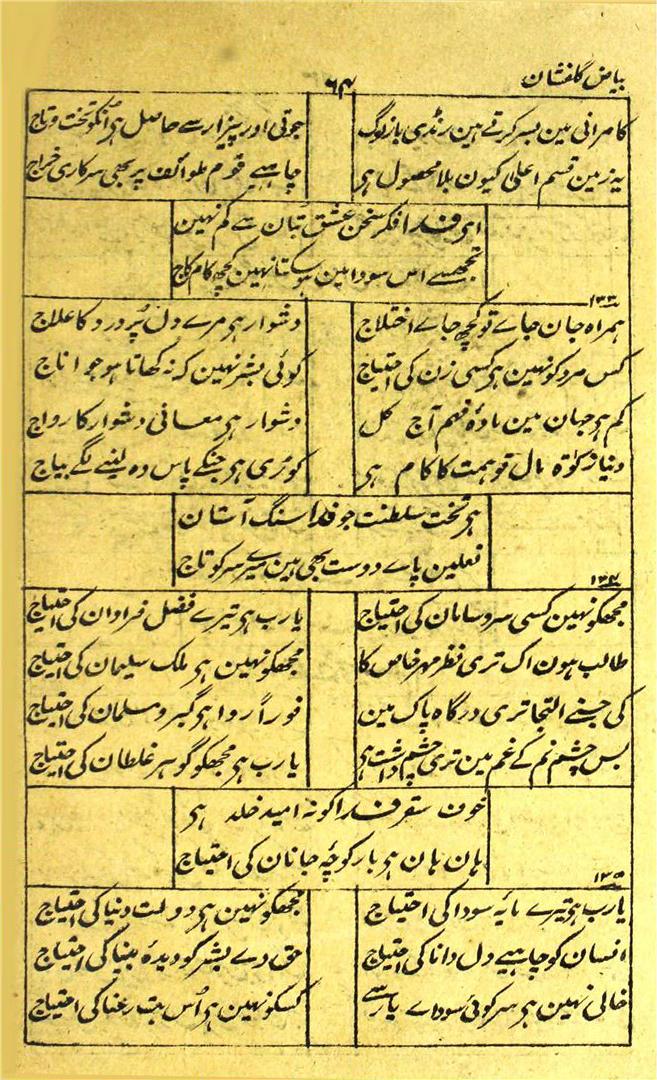 بیاض گلفشان
۶۴
کامرانی مین بسر کرتے ہین رنڈی باز لوگ جوتی اور پیزار سے حاصل ہی انکو تخت و تاج
یہ زمین قسم اعلیٰ کیون بلا محصول ہی چاہیے قوم طوائف پر بھی سرکاری خراج
ای فدا فکر سخن عشق بتان سے کم نہین
تجھسے اس سودا مین ہو سکتا نہین کچھ کام کاج
۱۳۳
ہمراہ جان جاے تو کچھ جاے اختلاج دشوار ہی مرے دل پُر درد کا علاج
کس مرد کو نہین ہی کسی زن کی احتیاج کوئی بشر نہین کہ نہ کھاتا ہو جو اناج
کم ہی جہان مین مادۂ فہم آج کل دشوار ہی معانی دشوار کا رواج
دینا زکوٰۃ مال تو ہمت کا کام ہی کوڑی ہی جنکے پاس وہ لینے لگے بیاج
ہی تخت سلطنت جو فدا سنگ آستان
نعلین پاے دوست بھی ہین میرے سر کو تاج
۱۳۴
مجھکو نہین کسی سر و سامان کی احتیاج یارب ہی تیرے فضل فراوان کی احتیاج
طالب ہون اک تری نظر مہر خاص کا مجھکو نہین ہی ملک سلیمان کی احتیاج
کی جسنے التجا تری درگاہ پاک مین فوراً روا ہی گبر و مسلمان کی احتیاج
بس چشم نم کے غم مین تری چشم داشت ہی یارب ہی مجھکو گوہر غلطان کی احتیاج
خوف سقر فدا کو نہ امید خلد ہی
ہان ہان ہی بار کوچۂ جانان کی احتیاج
۱۳۵
یارب ہی تیرے مایۂ سودا کی احتیاج مجھکو نہین ہی دولت دنیا کی احتیاج
انسان کو چاہیے دل دانا کی احتیاج حق دے بشر کو دیدۂ بینا کی احتیاج
خالی نہین ہی سر کوئی سوداے یار سے کسکو نہین ہی اُس بت رعنا کی احتیاج